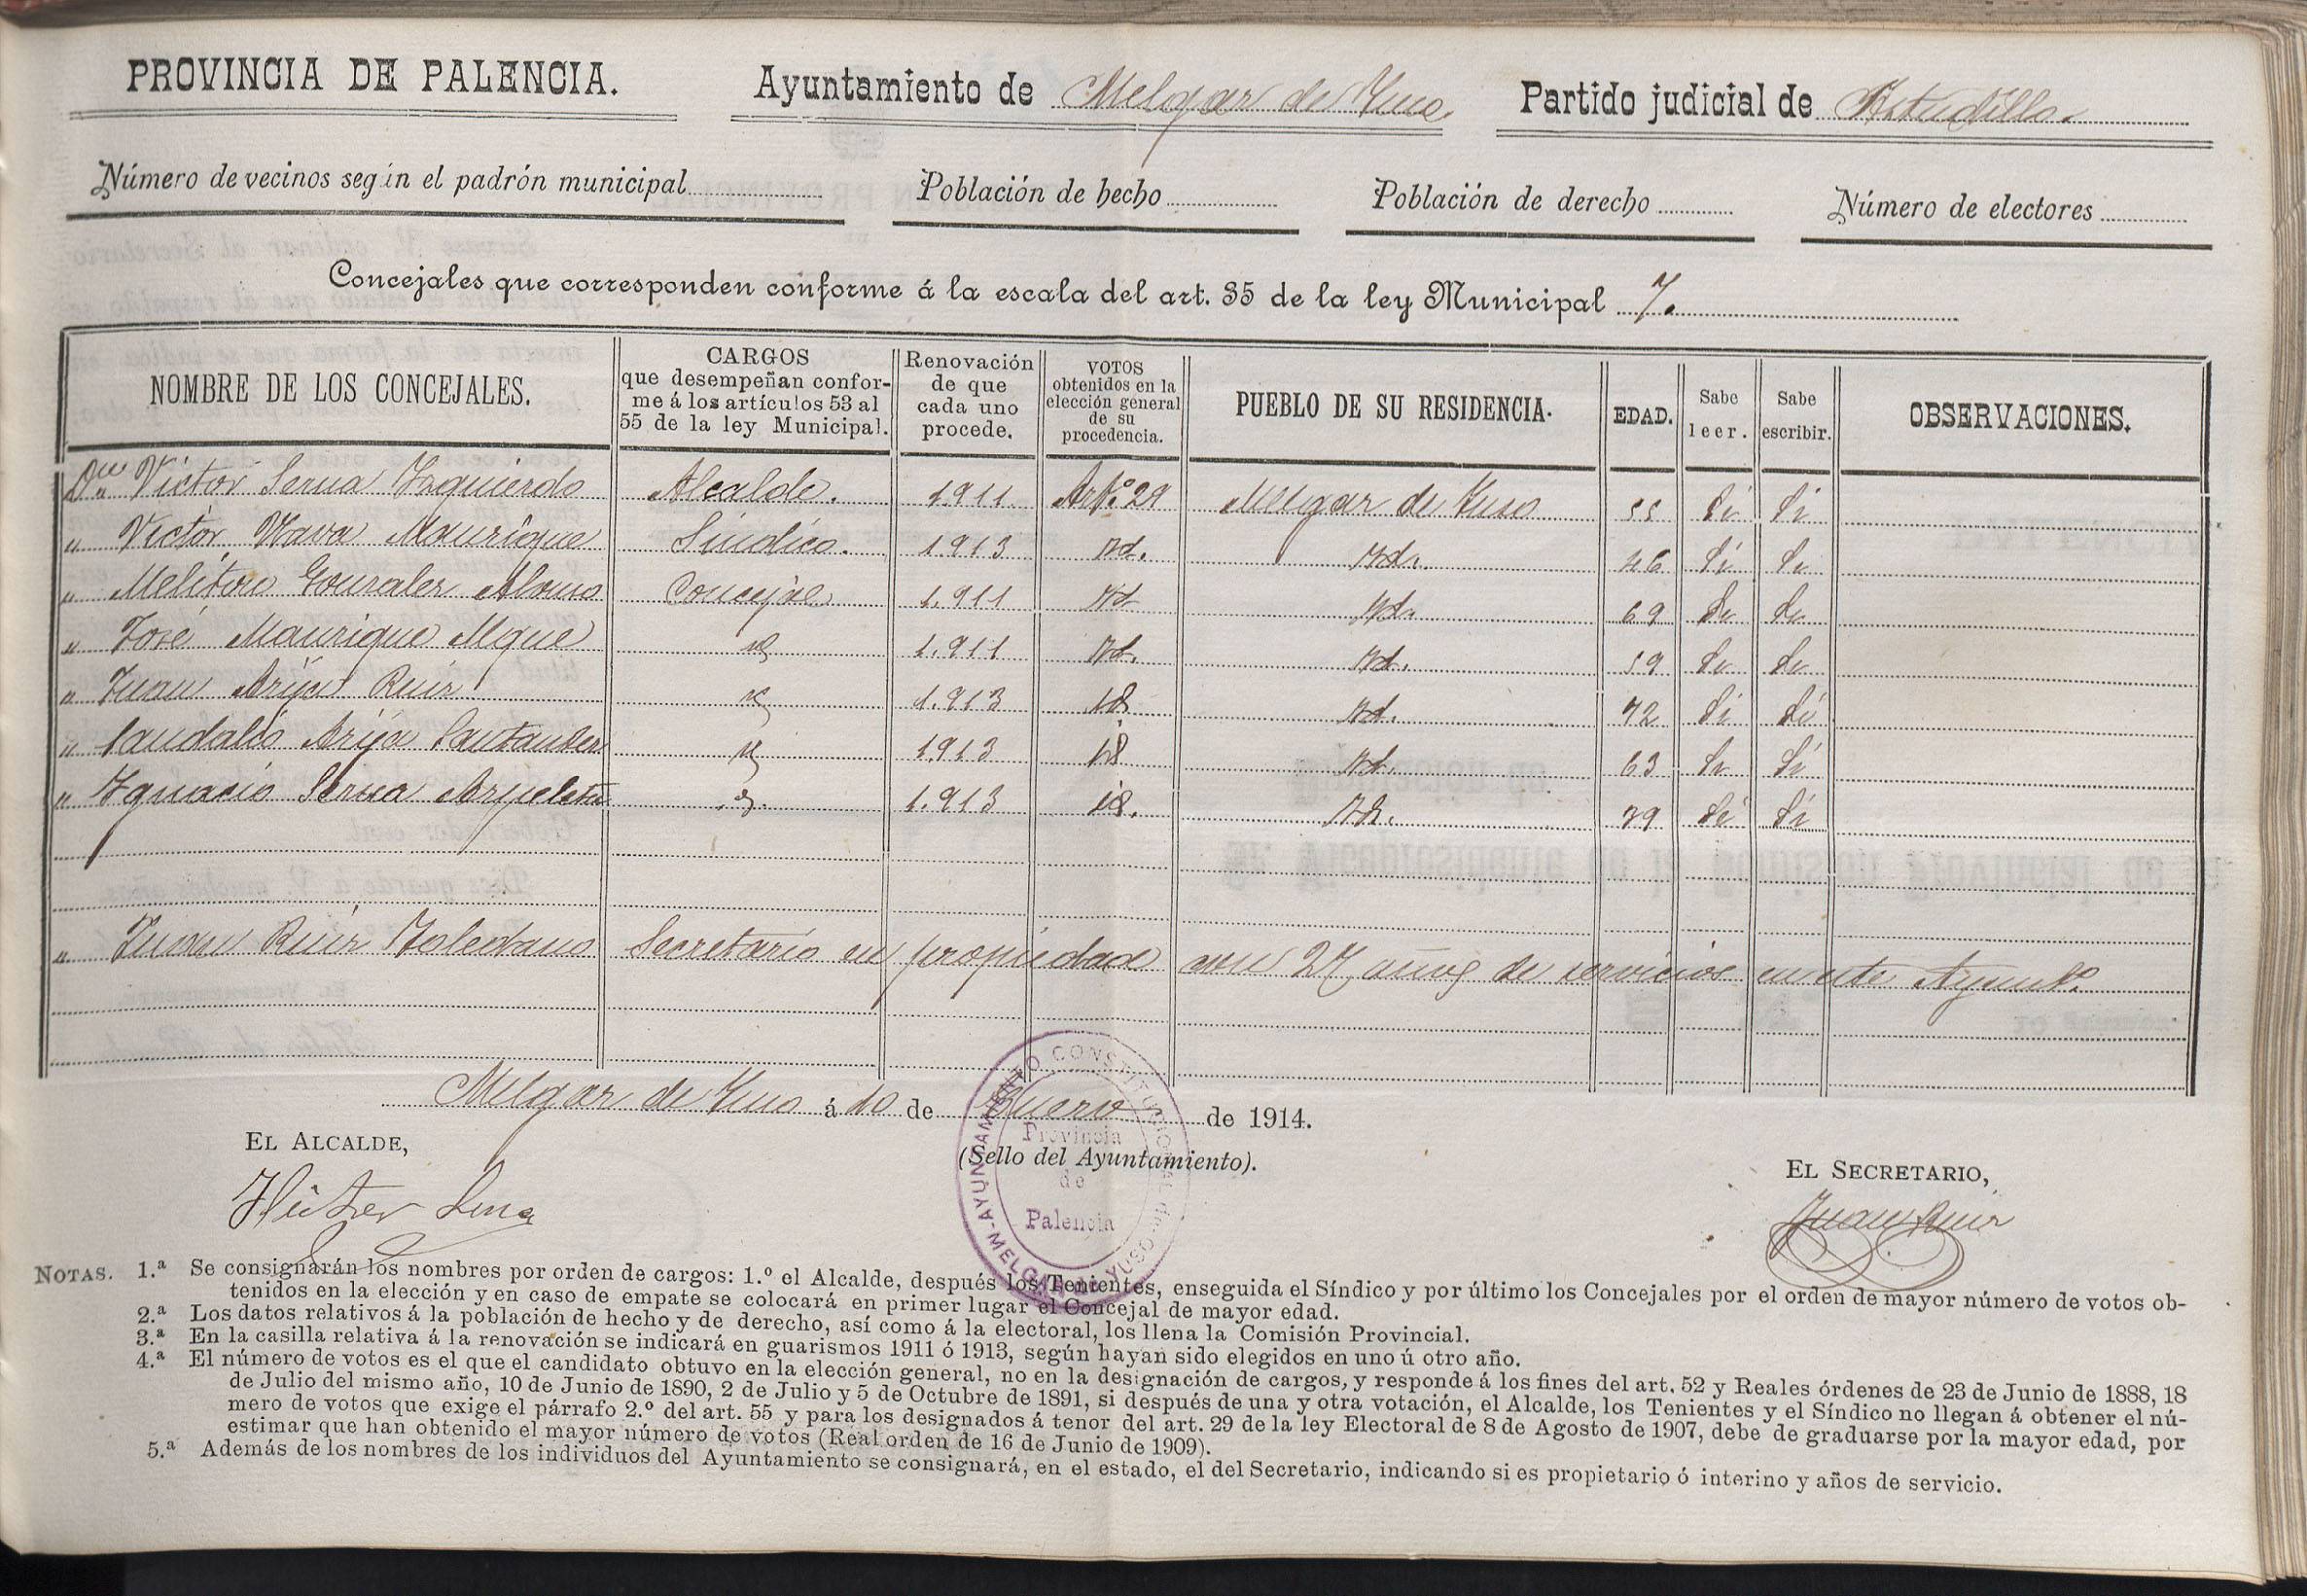 PROVINCIA DE PALENCIA. Ayuntamiento de Melgar de Yuso Partido judicial de Astudillo.
Número de vecinos según el padrón municipal Población de hecho Población de derecho Número de electores
Concejales que corresponden conforme á la escala del art. 35 de la ley Municipal 7.
NOMBRE DE LOS CONCEJALES. CARGOS que desempeñan conforme á los artículos 53 al 55 de la ley Municipal. Renovación de que cada uno procede. VOTOS obtenidos en la elección general de su procedencia. PUEBLO DE SU RESIDENCIA. EDAD. Sabe leer. Sabe escribir. OBSERVACIONES.
Dn Victor Serna Izquierdo Alcalde. 1.911 Art.º 29 Melgar de Yuso 55 Si Si
" Victor Manrique Sindico. 1.913 Id. Id. 46 Si Si
" Melitón Gonzalez Alonso Concejal 1.911 Id Id. 69 Si Si
" José Manrique Mque 1.911 Id. Id. 59 Si Si
" Juan Arija Ruiz 1.913 Id. 72 Si Si
" Arija Santander 1.913 Id. 63 Si Si
" Ignacio Serna 1.913 Id. 39 Si Si
" Juan Ruiz Toledano Secretario en propiedad con 27 años de servicios en este Ayunt.º
Melgar de Yuso á 10 de Enero de 1914.
EL ALCALDE,
(Sello del Ayuntamiento).
EL SECRETARIO,
AYUNTAMIENTO CONSTITUCIONAL de MELGAR de YUSO
Provincia
de
Palencia
Victor Serna
Juan Ruiz
NOTAS. 1.ª Se consignarán los nombres por orden de cargos: 1.º el Alcalde, después los Tenientes, enseguida el Síndico y por último los Concejales por el orden de mayor número de votos ob-
tenidos en la elección y en caso de empate se colocará en primer lugar el Concejal de mayor edad.
2.ª Los datos relativos á la población de hecho y de derecho, así como á la electoral, los llena la Comisión Provincial.
3.ª En la casilla relativa á la renovación se indicará en guarismos 1911 ó 1913, según hayan sido elegidos en uno ú otro año.
4.ª El número de votos es el que el candidato obtuvo en la elección general, no en la designación de cargos, y responde á los fines del art. 52 y Reales órdenes de 23 de Junio de 1888, 18
de Julio del mismo año, 10 de Junio de 1890, 2 de Julio y 5 de Octubre de 1891, si después de una y otra votación, el Alcalde, los Tenientes y el Síndico no llegan á obtener el nú-
mero de votos que exige el párrafo 2.º del art. 55 y para los designados á tenor del art. 29 de la ley Electoral de 8 de Agosto de 1907, debe de graduarse por la mayor edad, por
estimar que han obtenido el mayor número de votos (Real orden de 16 de Junio de 1909).
5.ª Además de los nombres de los individuos del Ayuntamiento se consignará, en el estado, el del Secretario, indicando si es propietario ó interino y años de servicio.